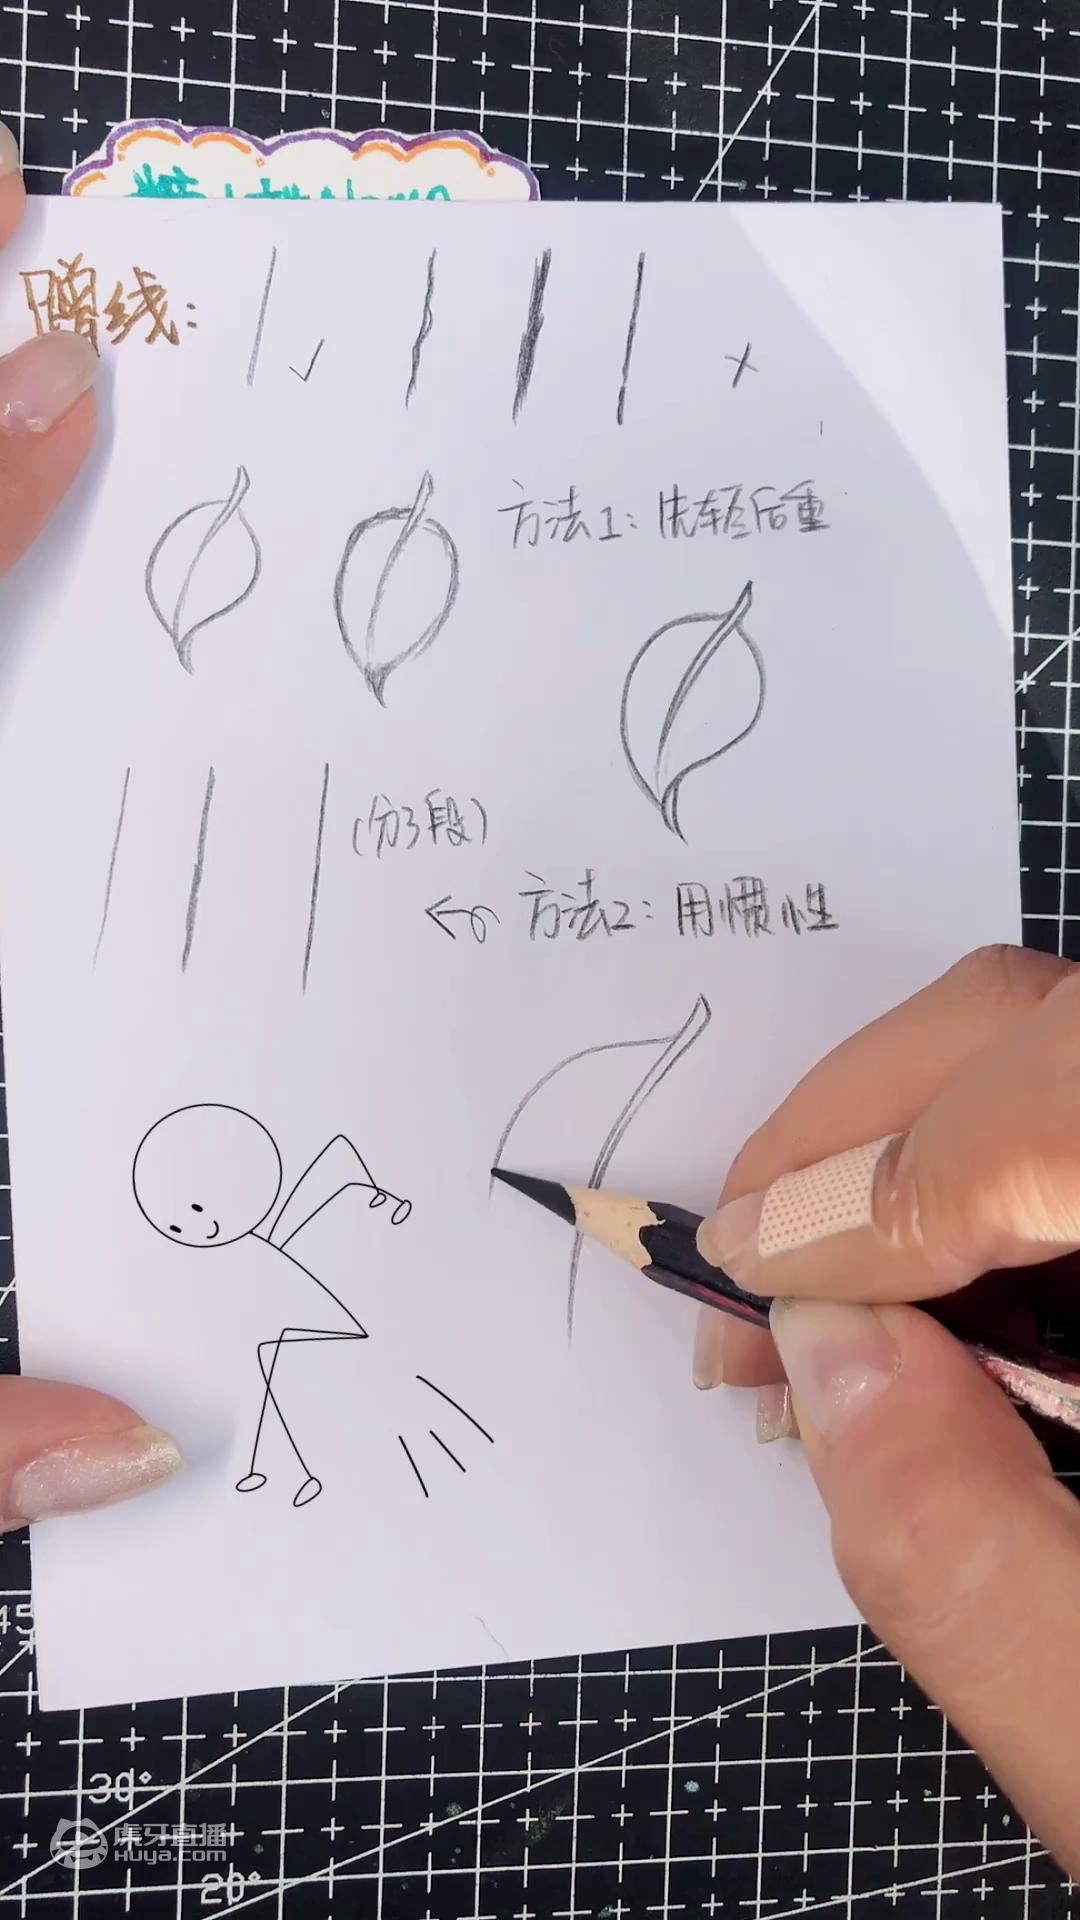 赠线:
方法1: 先轻后重
(分3段)
方法2: 用惯性
45
30°
20°
虎牙直播
Huya.com